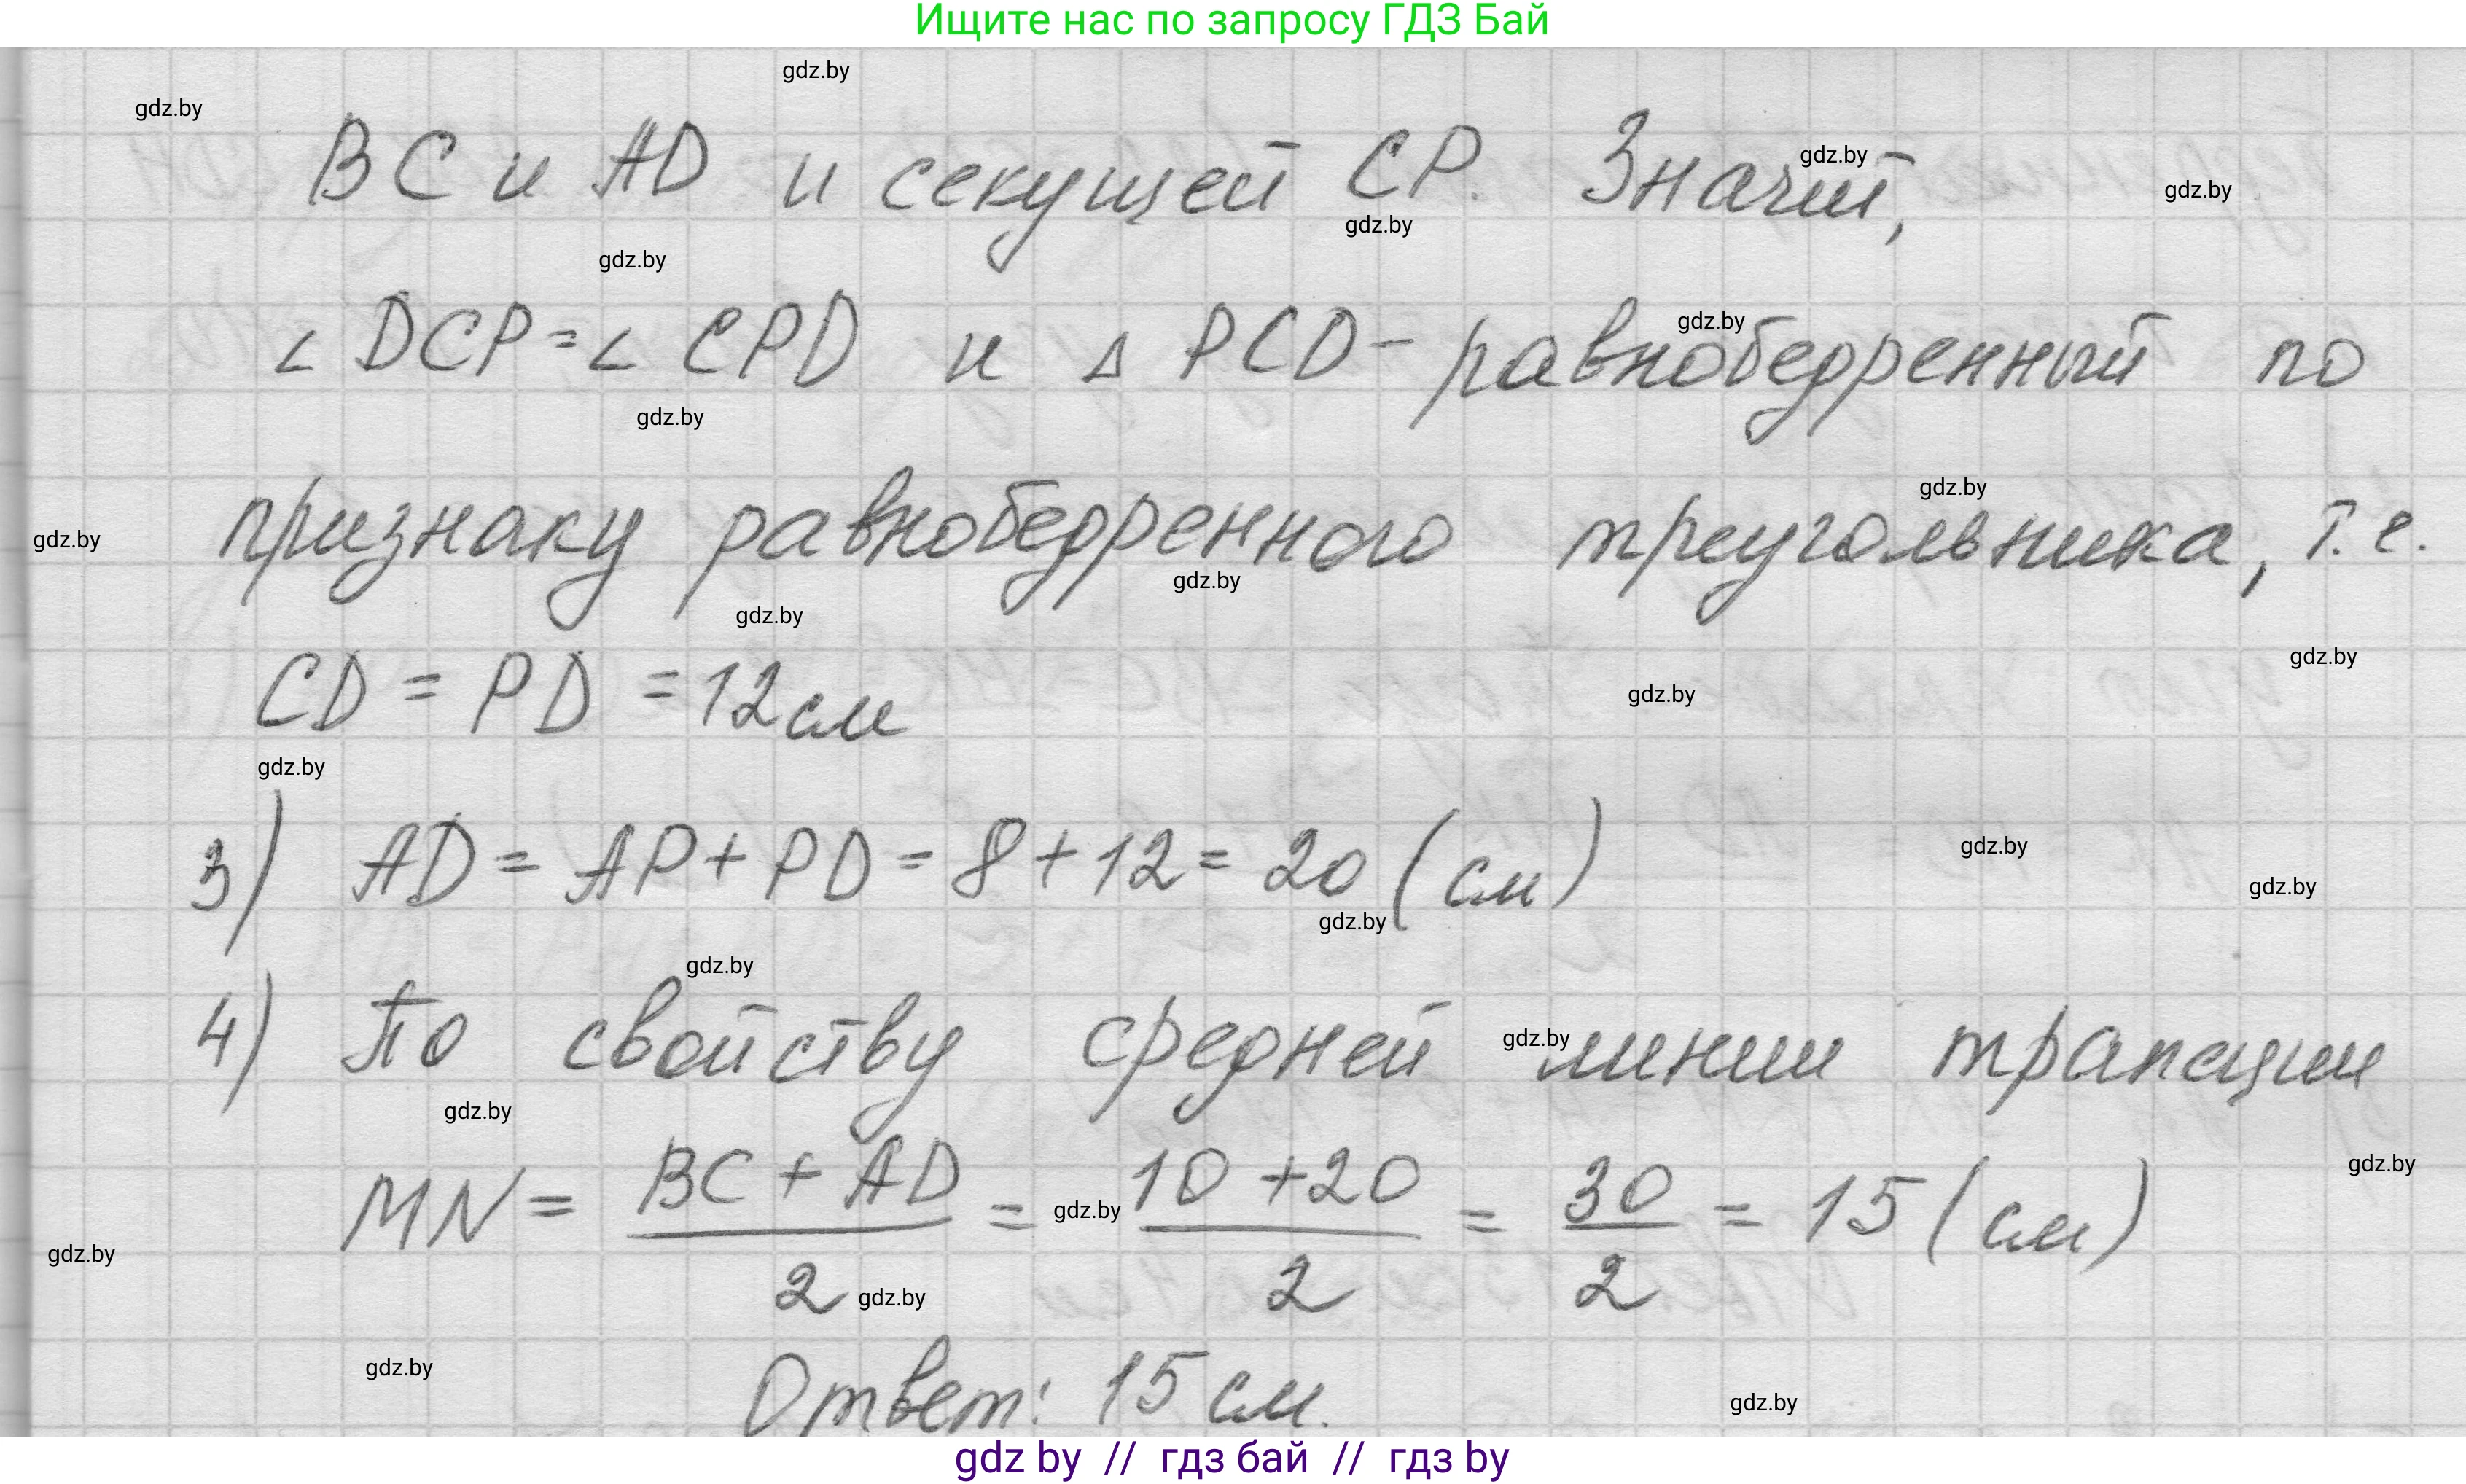 Ищите нас по запросу ГДЗ Бай
gdz.by
gdz.by
BC и AD и секущей CP. Значит,
gdz.by
gdz.by
gdz.by
gdz.by
∠ DCP = ∠ CPD и △ PCD - равнобедренный по
gdz.by
gdz.by
признаку равнобедренного треугольника, т.е.
gdz.by
gdz.by
gdz.by
gdz.by
CD = PD = 12 см
gdz.by
gdz.by
gdz.by
3) AD = AP + PD = 8 + 12 = 20 (см)
gdz.by
gdz.by
gdz.by
gdz.by
4) По свойству средней линии трапеции
gdz.by
gdz.by
MN = BC + AD / 2 = 10 + 20 / 2 = 30 / 2 = 15 (см)
gdz.by
gdz.by
gdz.by
gdz.by
Ответ: 15 см.
gdz.by
gdz.by
gdz by // гдз бай // гдз by